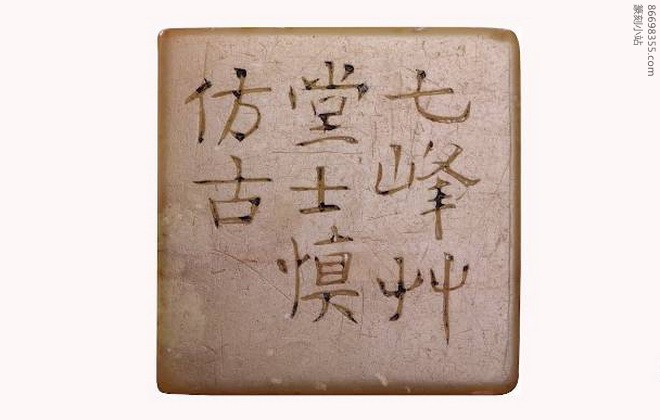 七峰艸
堂士慎
仿古
86698355.com
篆刻小站